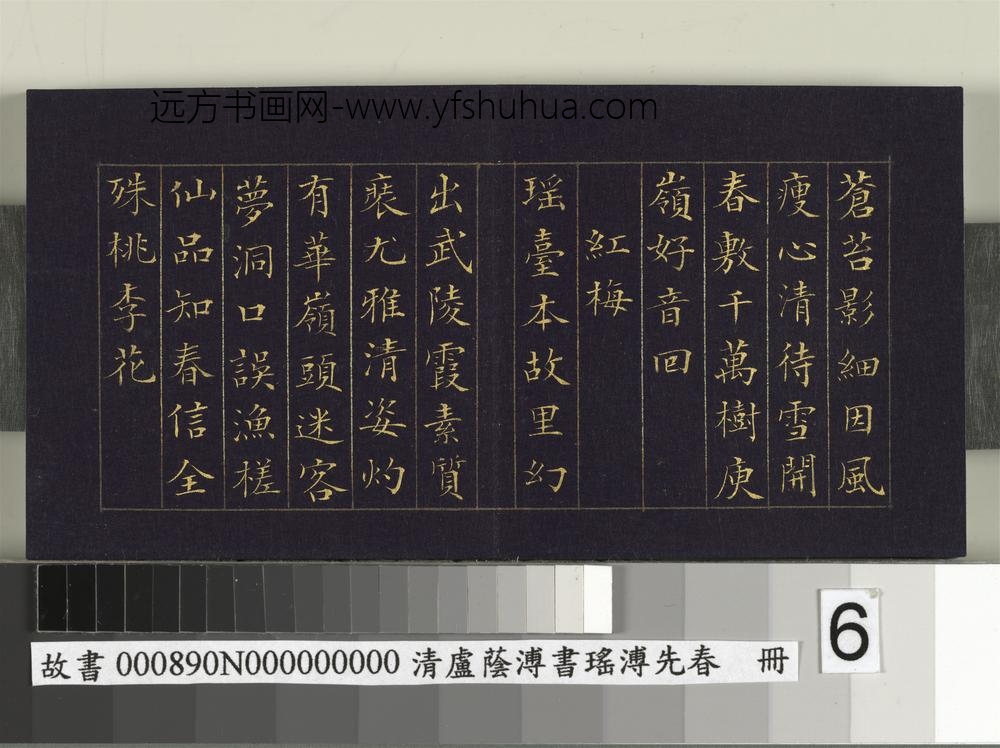 远方书画网-www.yfshuhua.com
蒼苔影細因風
瘦心清待雪開
春敷千萬樹庾
嶺好音回
紅梅
瑶臺本故里幻
出武陵霞素質
裛尤雅清姿灼
有華嶺頭迷客
夢洞口誤漁槎
仙品知春信全
殊桃李花
故書 000890N000000000 清盧蔭溥書瑤溥先春 冊
6